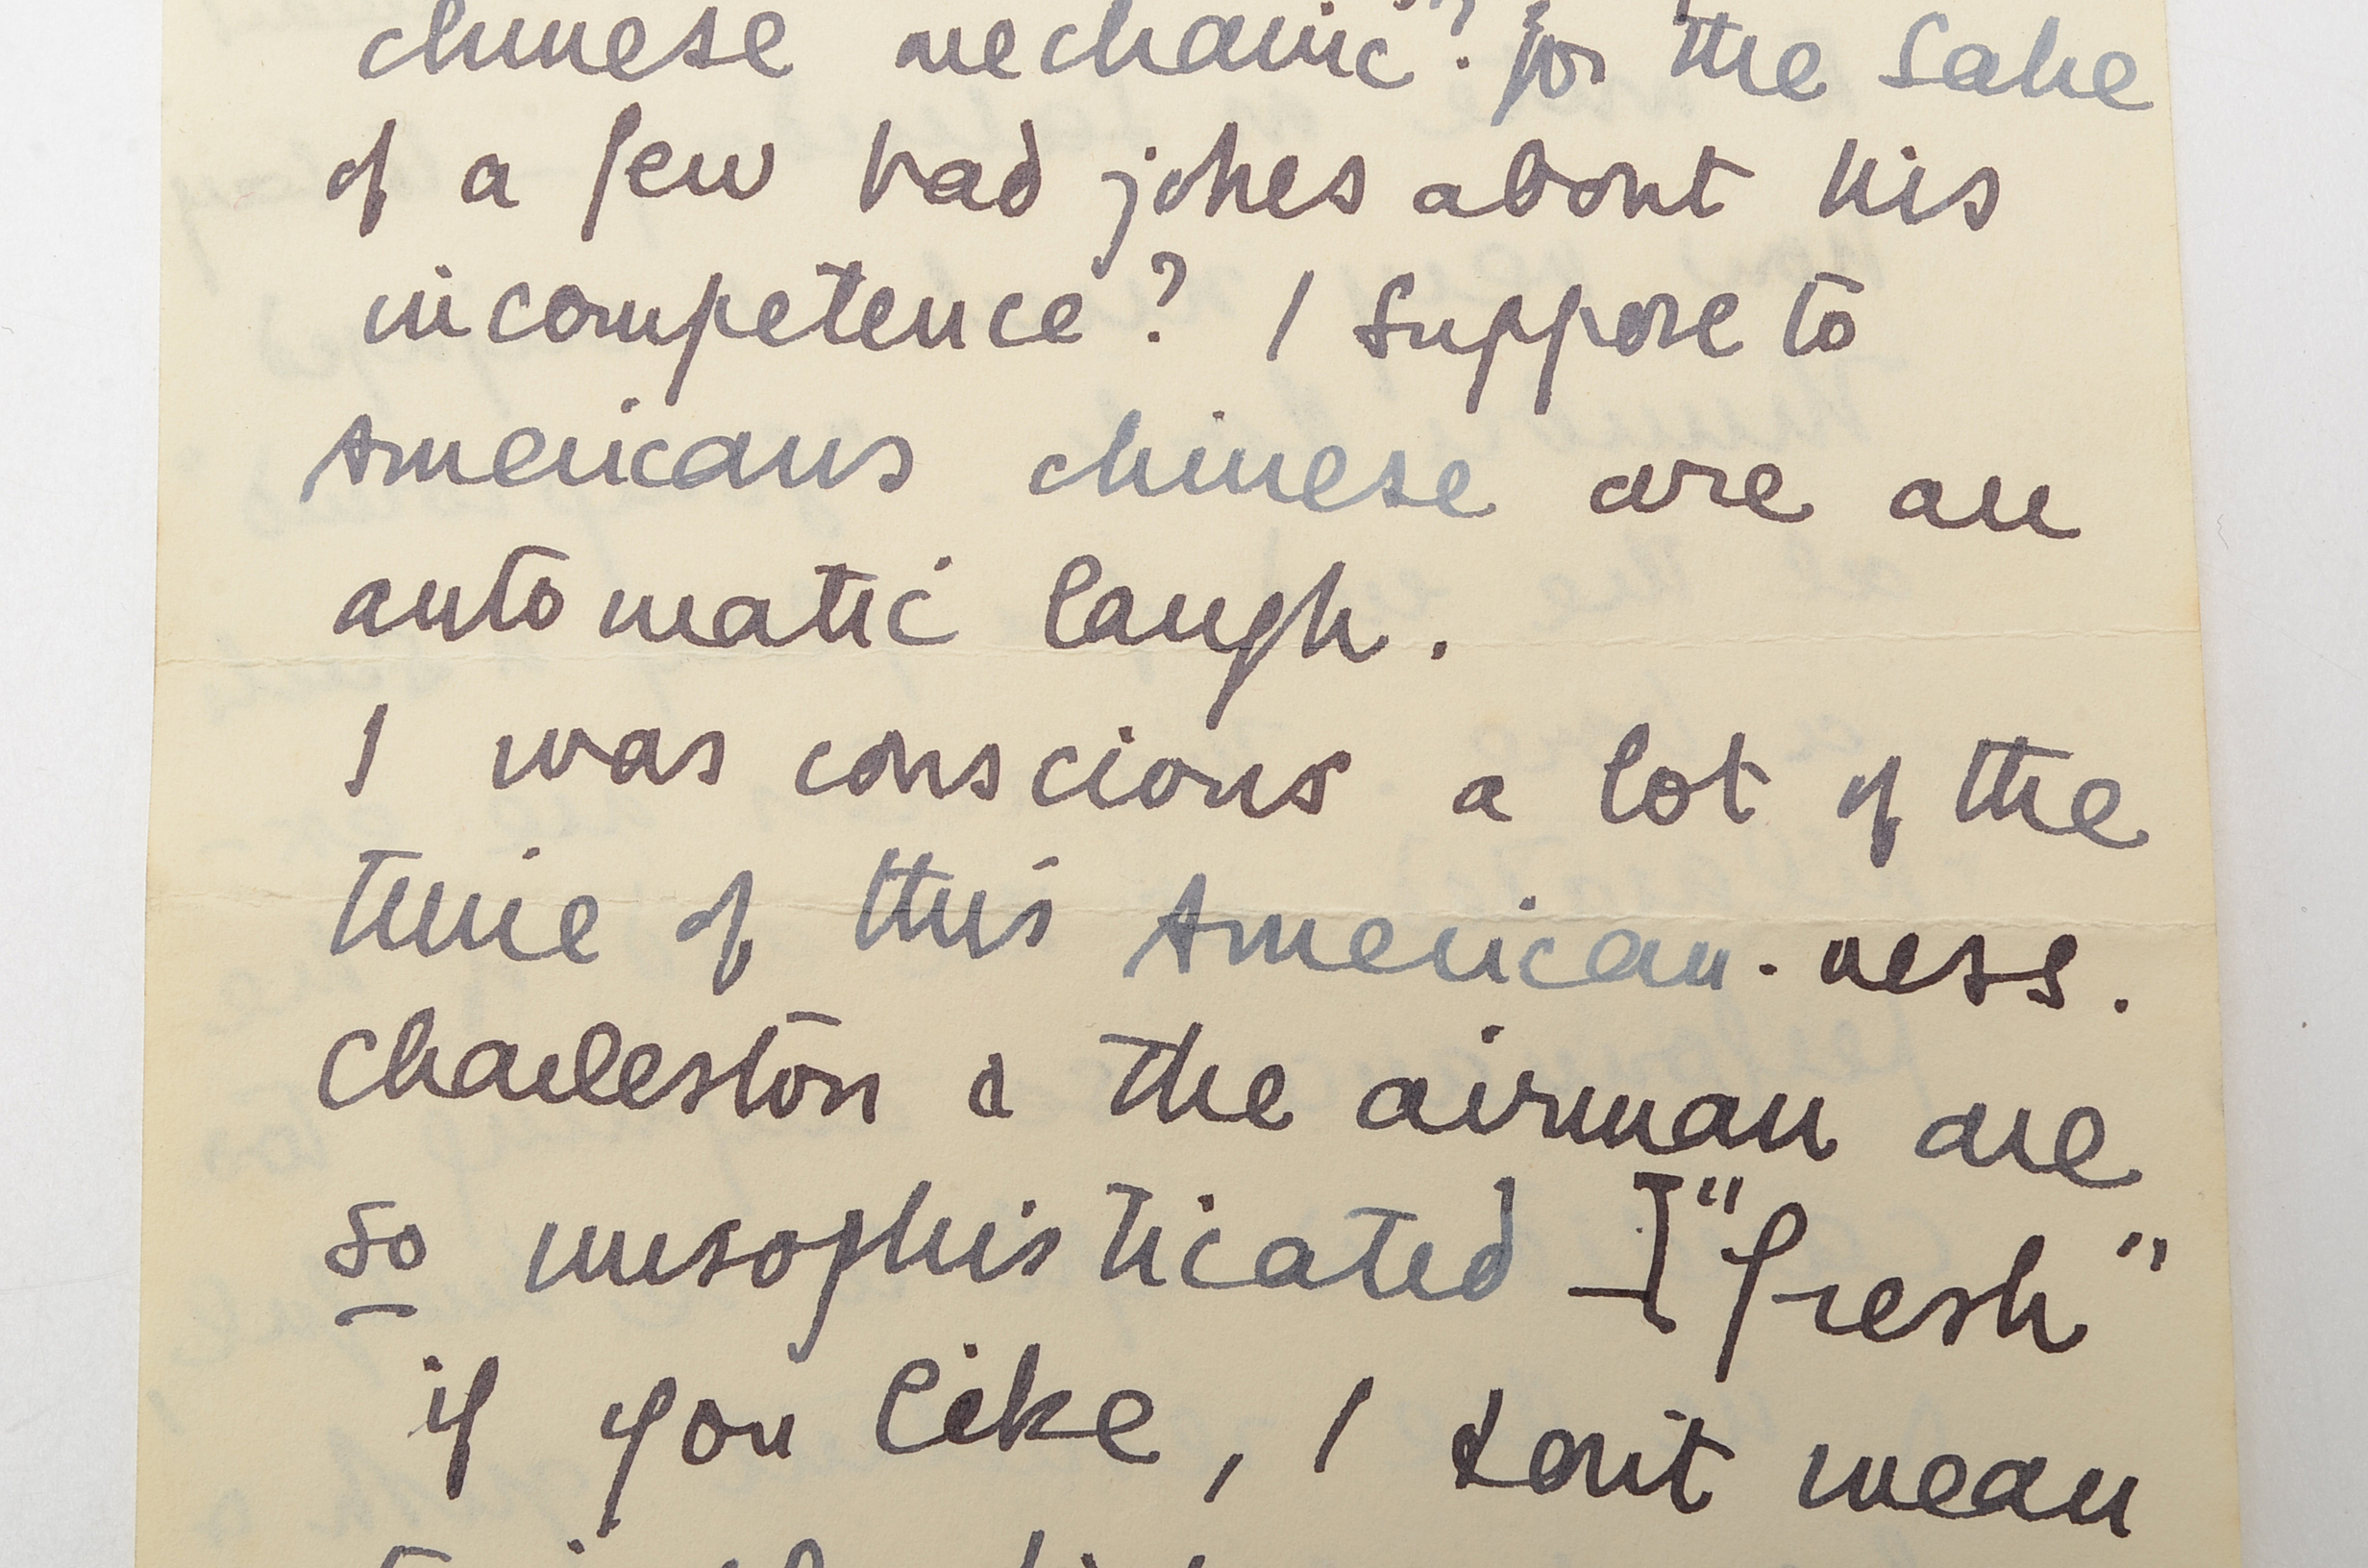 chinese mechanic? for the sake
of a few bad jokes about his
incompetence? I suppose to
Americans chinese are an
automatic laugh.
I was conscious a lot of the
time of this American-ness.
Charleston & the airman are
so unsophisticated - ["fresh"
if you like, I don't mean